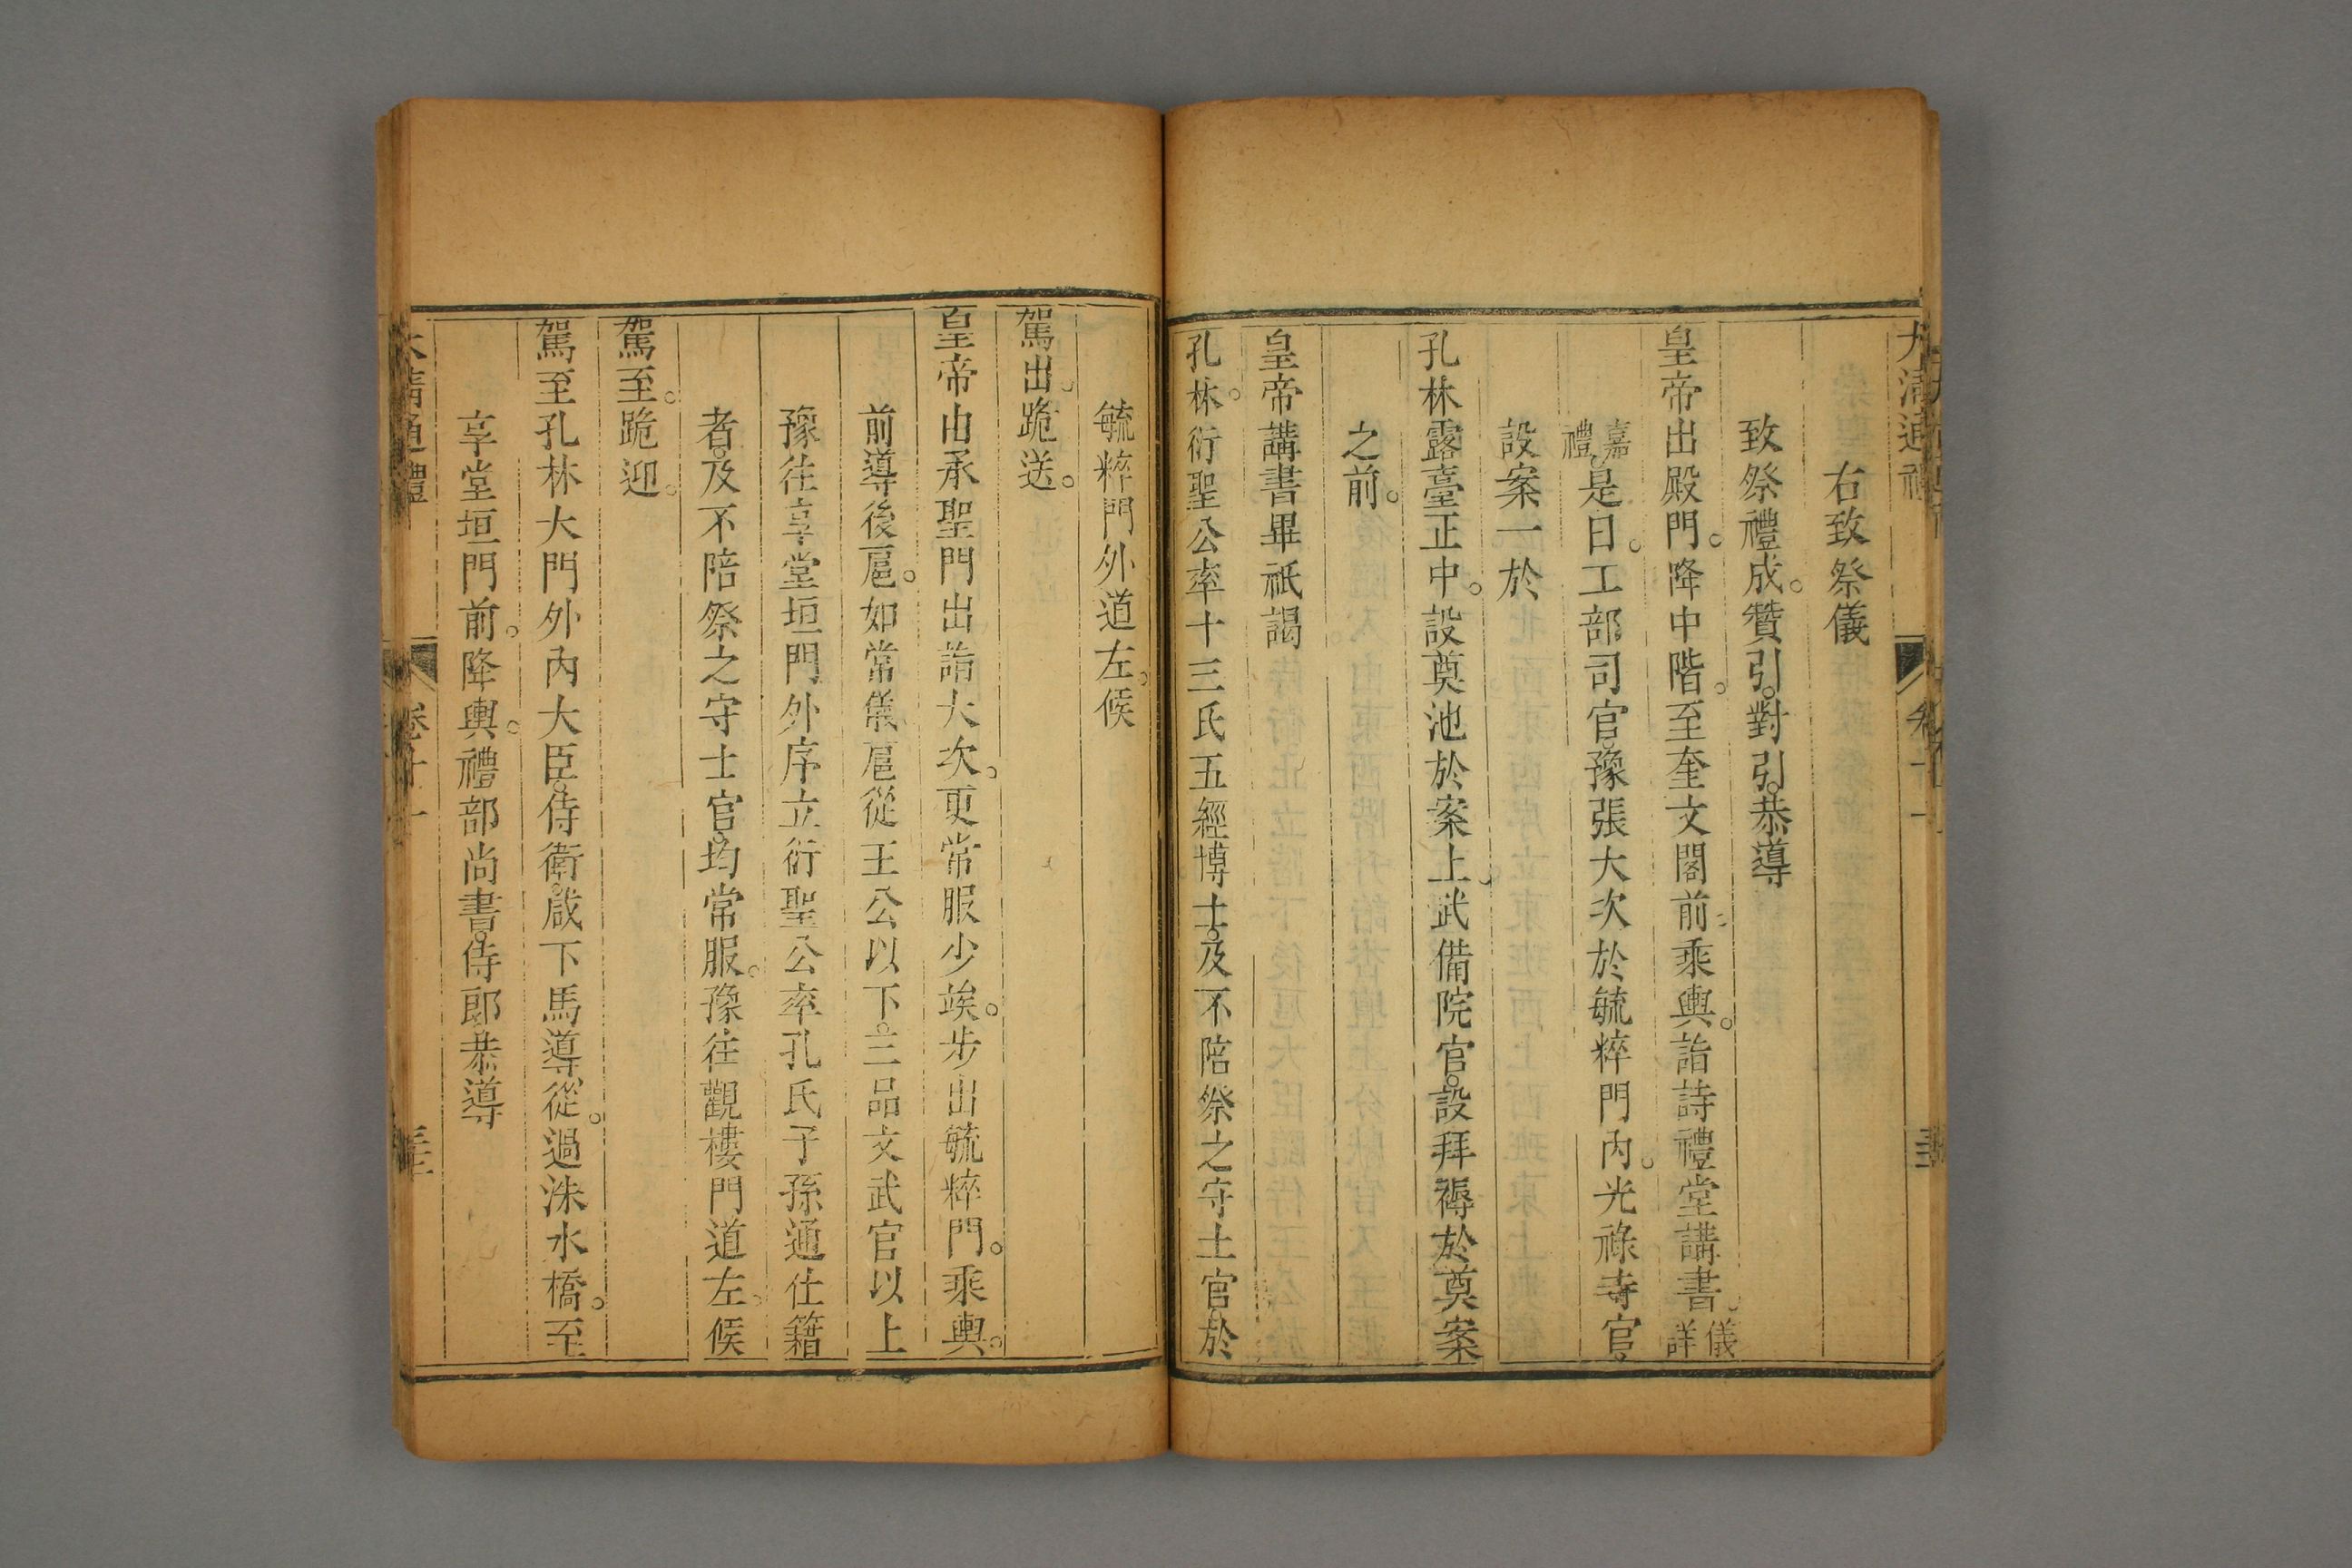 大清通禮 卷十一
右致祭儀
致祭禮成。贊引。對引。恭導
皇帝出殿門。降中階。至奎文閣前乘輿。詣詩禮堂講書。儀詳
嘉禮。是日。工部司官。豫張大次於毓粹門內。光祿寺官。
設案一於
孔林露臺正中。設奠池於案上。武備院官。設拜褥於奠案
之前。
皇帝講書畢祇謁
孔林。衍聖公率十三氏五經博士。及不陪祭之守土官於
毓粹門外道左。候
駕出。跪送。
皇帝由承聖門出詣大次。更常服少竢。步出毓粹門。乘輿。
前導後扈。如常儀。扈從王公以下。三品文武官以上
豫往享堂垣門外序立衍聖公率孔氏子孫通仕籍
者。及不陪祭之守土官。均常服。豫往觀樓門道左。候
駕至。跪迎。
駕至孔林大門外內大臣。侍衛。咸下馬導從。過洙水橋。至
享堂垣門前。降輿。禮部尚書。侍郎恭導
大清通禮 卷十一